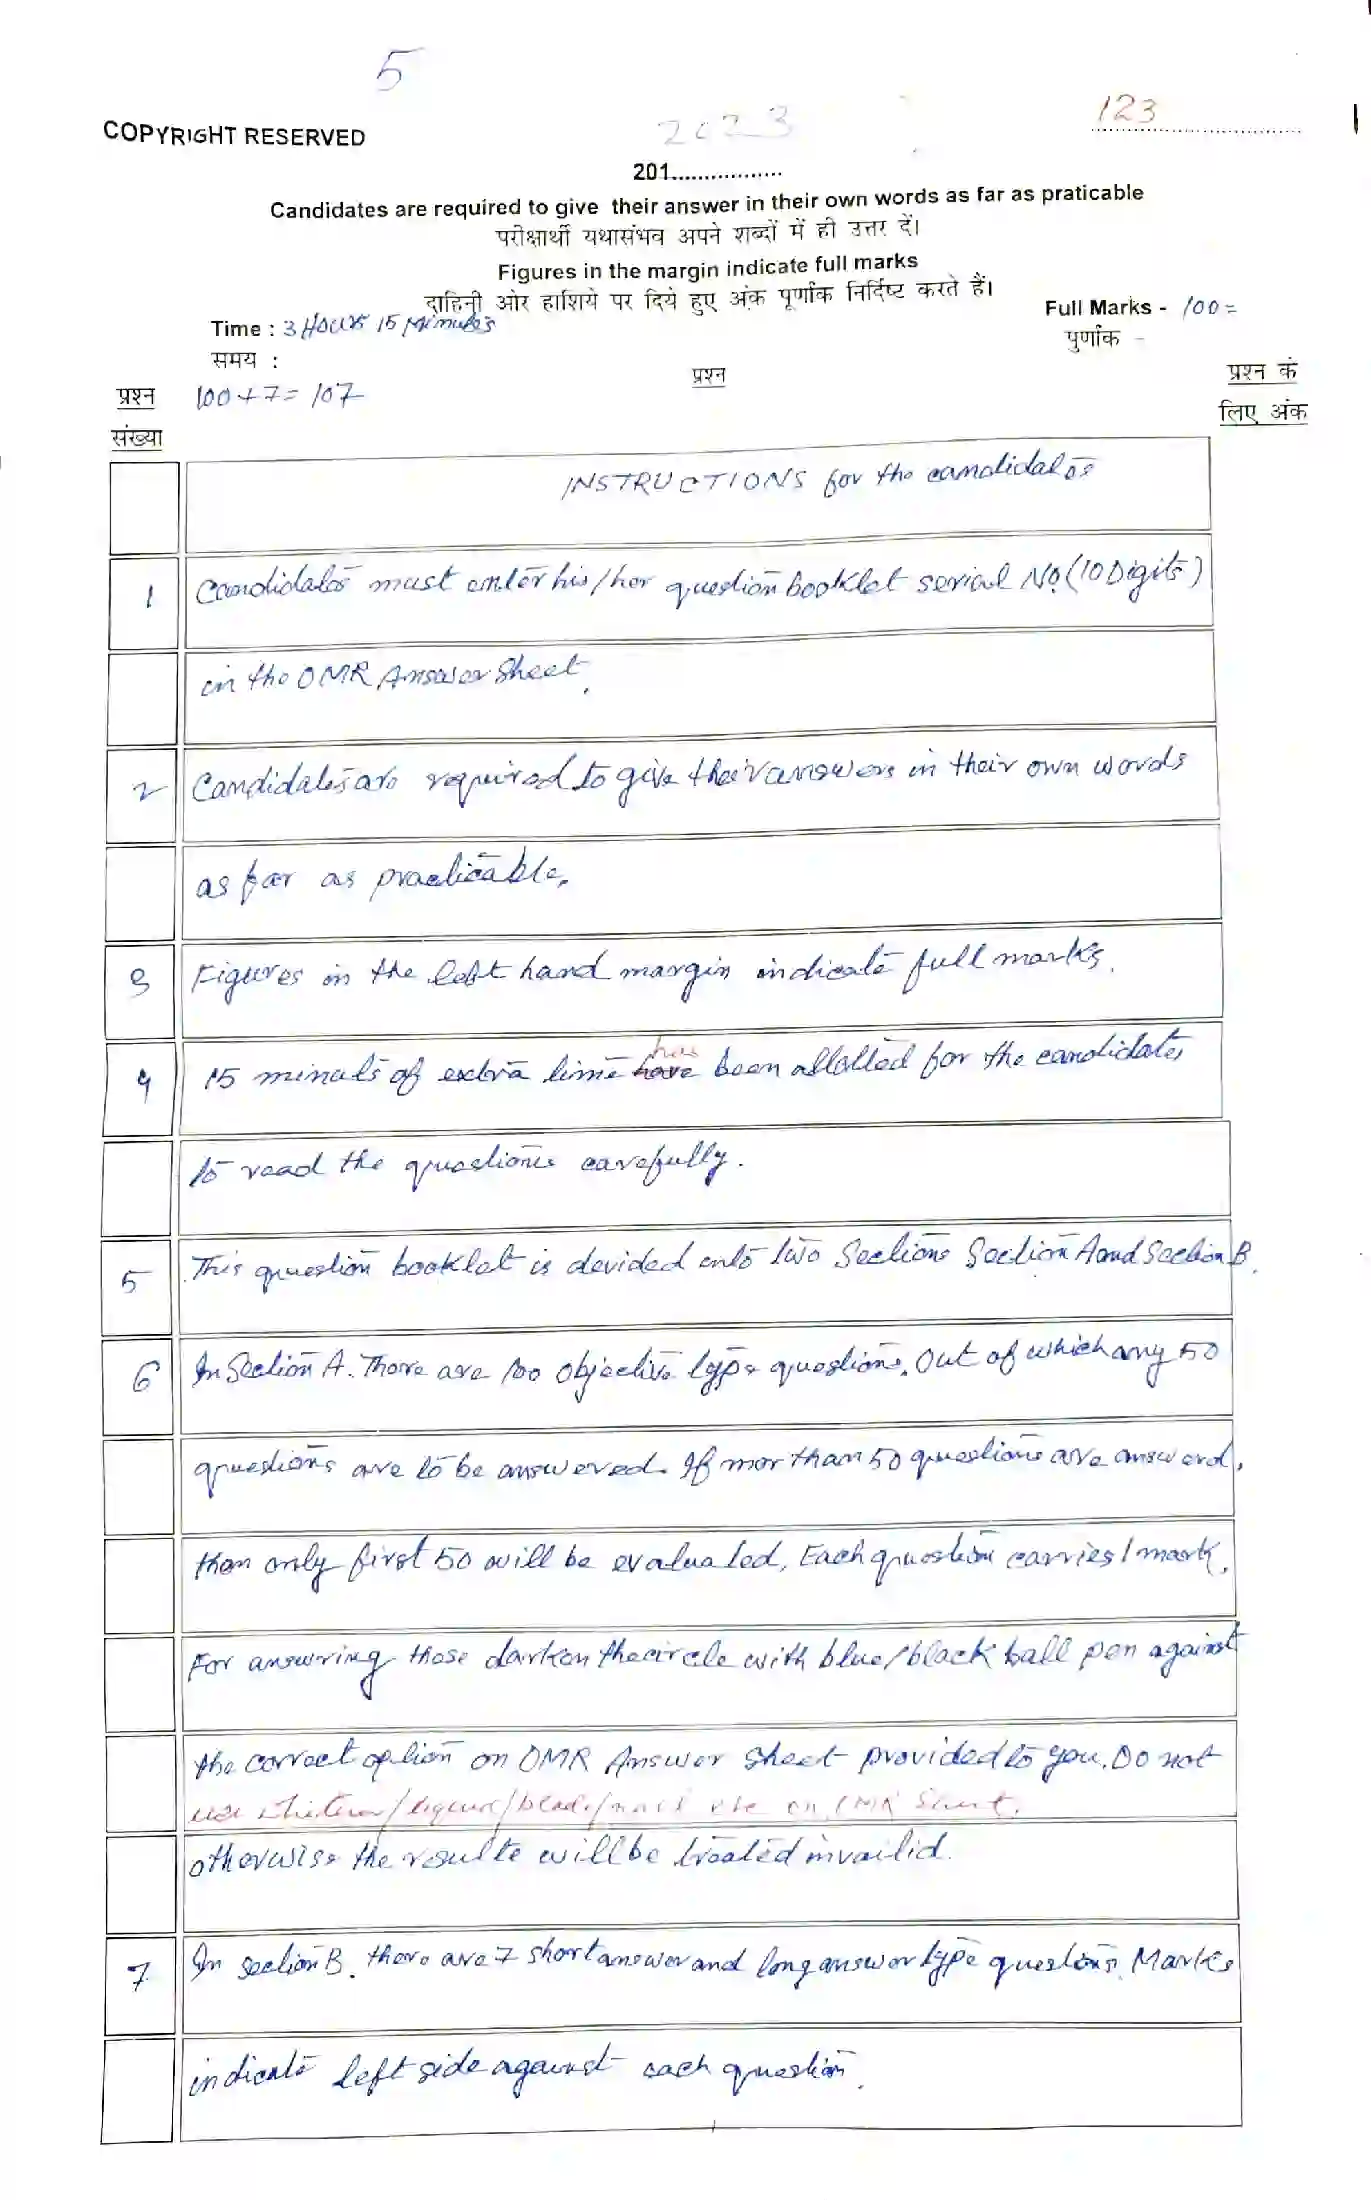 5
COPYRIGHT RESERVED
2023
123
201.................
Candidates are required to give their answer in their own words as far as praticable
परीक्षार्थी यथासंभव अपने शब्दों में ही उत्तर दें।
Figures in the margin indicate full marks
दाहिनी ओर हाशिये पर दिये हुए अंक पूर्णांक निर्दिष्ट करते हैं।
Time : 3 Hours 15 Minutes
Full Marks - 100 =
समय :
पुर्णांक -
प्रश्न संख्या
100+7=107
प्रश्न
प्रश्न कं लिए अंक
INSTRUCTIONS for the candidates
1 Candidates must enter his/her question booklet serial No. (10 Digits)
in the OMR Answer Sheet.
2 Candidates are required to give their answers in their own words
as far as practicable.
3 Figures in the left hand margin indicate full marks.
4 15 minuts of extra time has been allotted for the candidates
to read the questions carefully.
5 This question booklet is devided into two Sections Section A and Section B.
6 In Section A. There are 100 objective type questions. Out of which any 50
questions are to be answered. If mor than 50 questions are answerd,
then only first 50 will be evaluated. Each question carries 1 mark.
For answring these darken the circle with blue/black ball pen against
the correct option on OMR Answer Sheet provided to you. Do not
use whitener/liquid/blade/nail etc on OMR Sheet.
otherwise the results will be treated invailid.
7 In section B. there are 7 short answer and long answer type questions. Marks
indicate left side against each question.